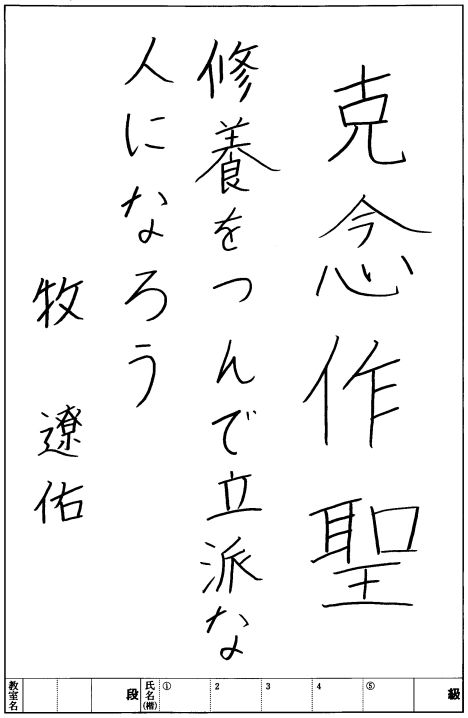 克念作聖
修養をつんで立派な
人になろう
牧 遼佑
級 ⑤ 4 3 2 ① 氏名(楷) 段 教室名